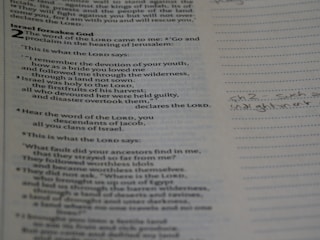 land will stand against the
against the kings of Judah, its of-
ficials, its priests and the people of the land.
fight against you but will not over-
you, for I am with you and will rescue you,"
declares the LORD.
Israel Forsakes God
2 The word of the LORD came to me: "Go and
proclaim in the hearing of Jerusalem:
"This is what the LORD says:
"'I remember the devotion of your youth,
how as a bride you loved me
and followed me through the wilderness,
through a land not sown.
Israel was holy to the LORD,
the firstfruits of his harvest;
all who devoured her were held guilty,
and disaster overtook them,'"
declares the LORD.
Hear the word of the LORD, you
descendants of Jacob,
all you clans of Israel.
This is what the LORD says:
"What fault did your ancestors find in me,
that they strayed so far from me?
They followed worthless idols
and became worthless themselves.
They did not ask, 'Where is the LORD,
who brought us up out of Egypt
and led us through the barren wilderness,
through a land of deserts and ravines,
a land of drought and utter darkness,
a land where no one travels and no one
lives?'
I brought you into a fertile land
to eat its fruit and rich produce.
But you came and defiled my land
ch 2